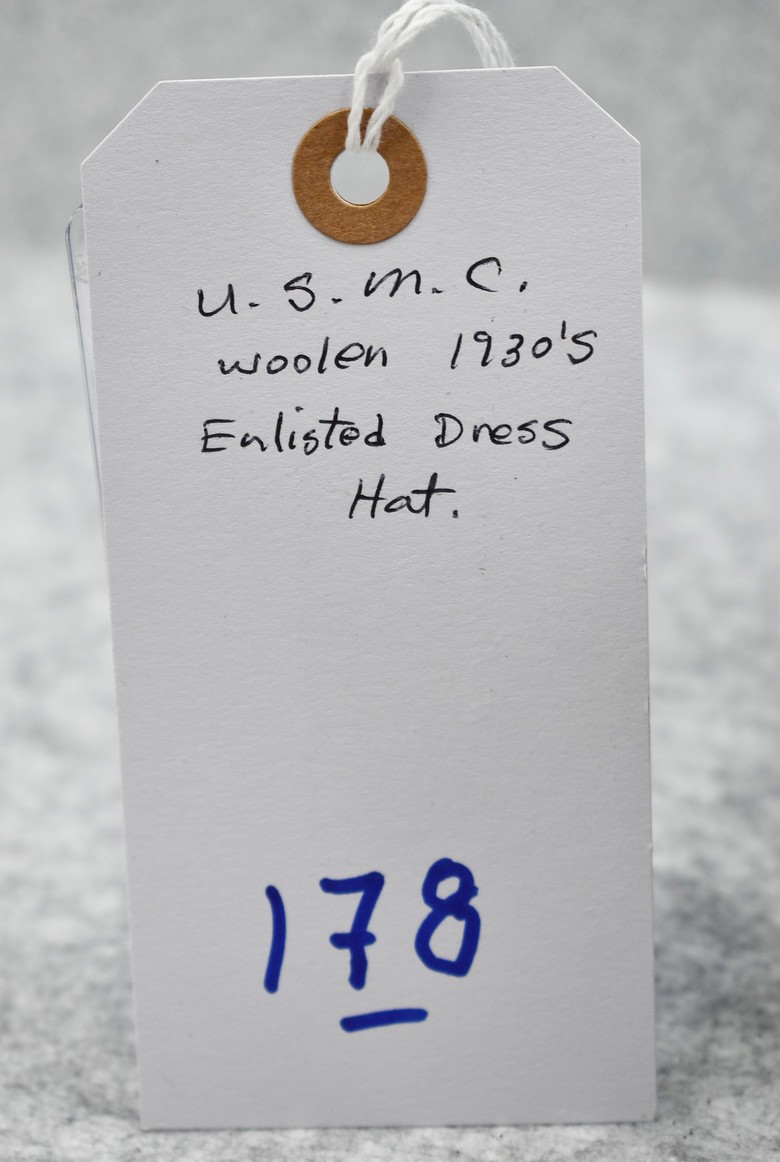 U. S. M. C.
woolen 1930's
Enlisted Dress
Hat.
178